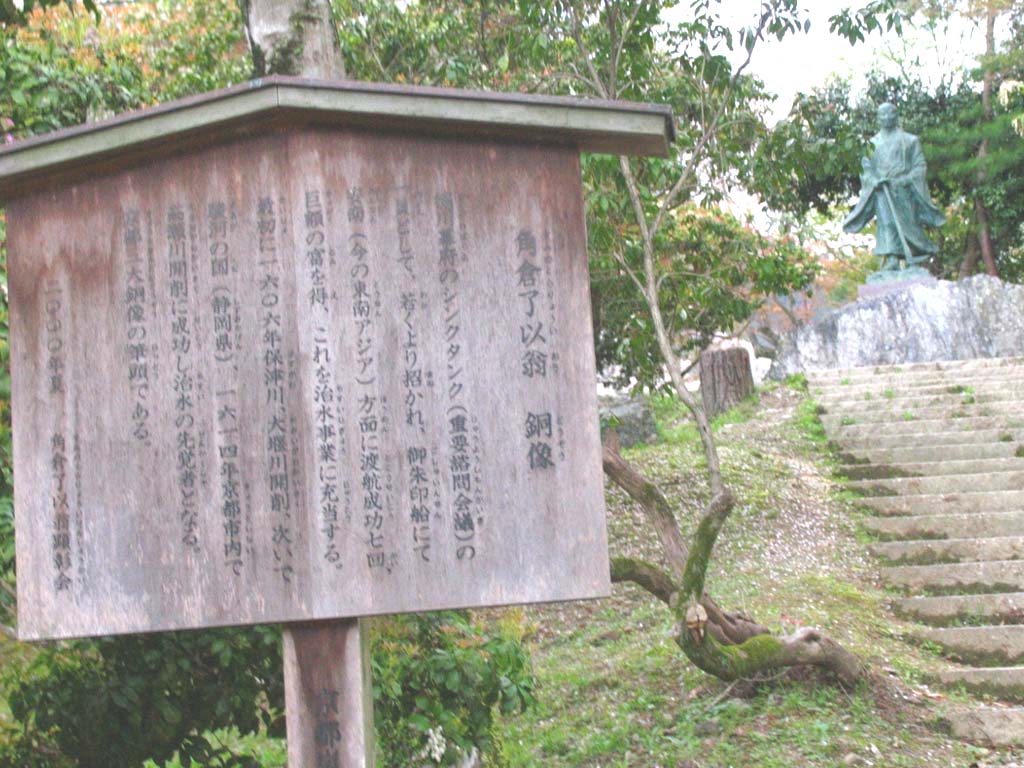 角倉了以翁　銅像
徳川幕府のシンクタンク（重要諮問会議）の
一員として、若くより招かれ、御朱印船にて
安南（今の東南アジア）方面に渡航成功七回、
巨額の富を得、これを治水事業に充当する。
最初に一六〇六年保津川、大堰川開削、次いで
駿河の国（静岡県）、一六一四年京都市内で
高瀬川開削に成功し治水の先覚者となる。
京都三大銅像の筆頭である。
二〇〇〇年夏　角倉了以翁顕彰会
京都